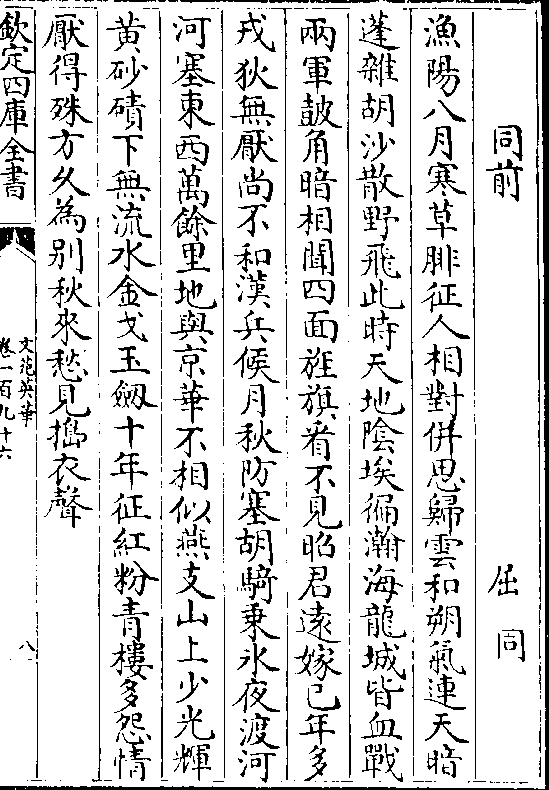 同前　屈同
漁陽八月寒草腓征人相對併思歸雲和朔氣連天暗
蓬雜胡沙散野飛此時天地陰埃徧瀚海龍城皆血戰
兩軍鼓角暗相聞四面旌旗看不見昭君遠嫁已年多
戎狄無厭尚不和漢兵候月秋防塞胡騎乘氷夜渡河
河塞東西萬餘里地與京華不相似燕支山上少光輝
黄砂磧下無流水金戈玉劒十年征紅粉青樓多怨情
厭得殊方久為别秋來愁見擣衣聲
欽定四庫全書
文苑英華
卷一百九十六
八